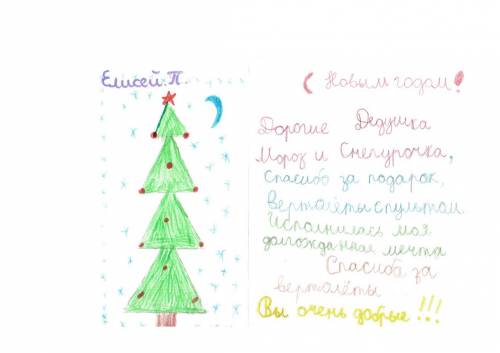 Елисей.П.
С Новым годом!
Дорогие Дедушка
Мороз и Снегурочка,
Спасибо за подарок,
Вертолёты с пультом.
Исполнилась моя
долгожданная мечта
Спасибо за
вертолёты
Вы очень добрые!!!